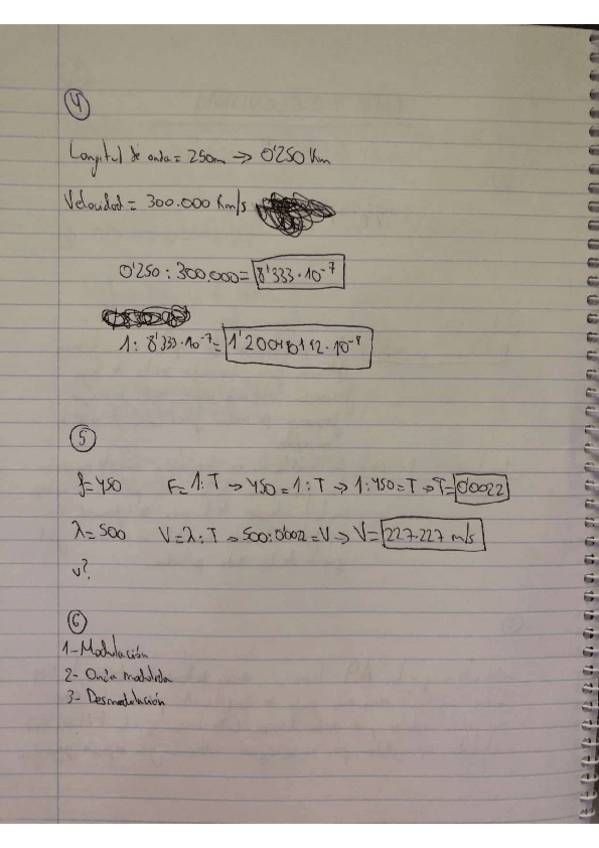 4
Longitud de onda = 250m → 0'250 Km
Velocidad = 300.000 Km/s
0'250 : 300.000 = 8'333·10⁻⁷
1 : 8'333·10⁻⁷ =
5
f=450 F=1:T → 450=1:T → 1:450=T → T=0'0022
λ=500 V=λ:T → 500:0'0022=V → V= 227.227 m/s
v?
6
1- Modulación
2- Onda modulada
3- Desmodulación